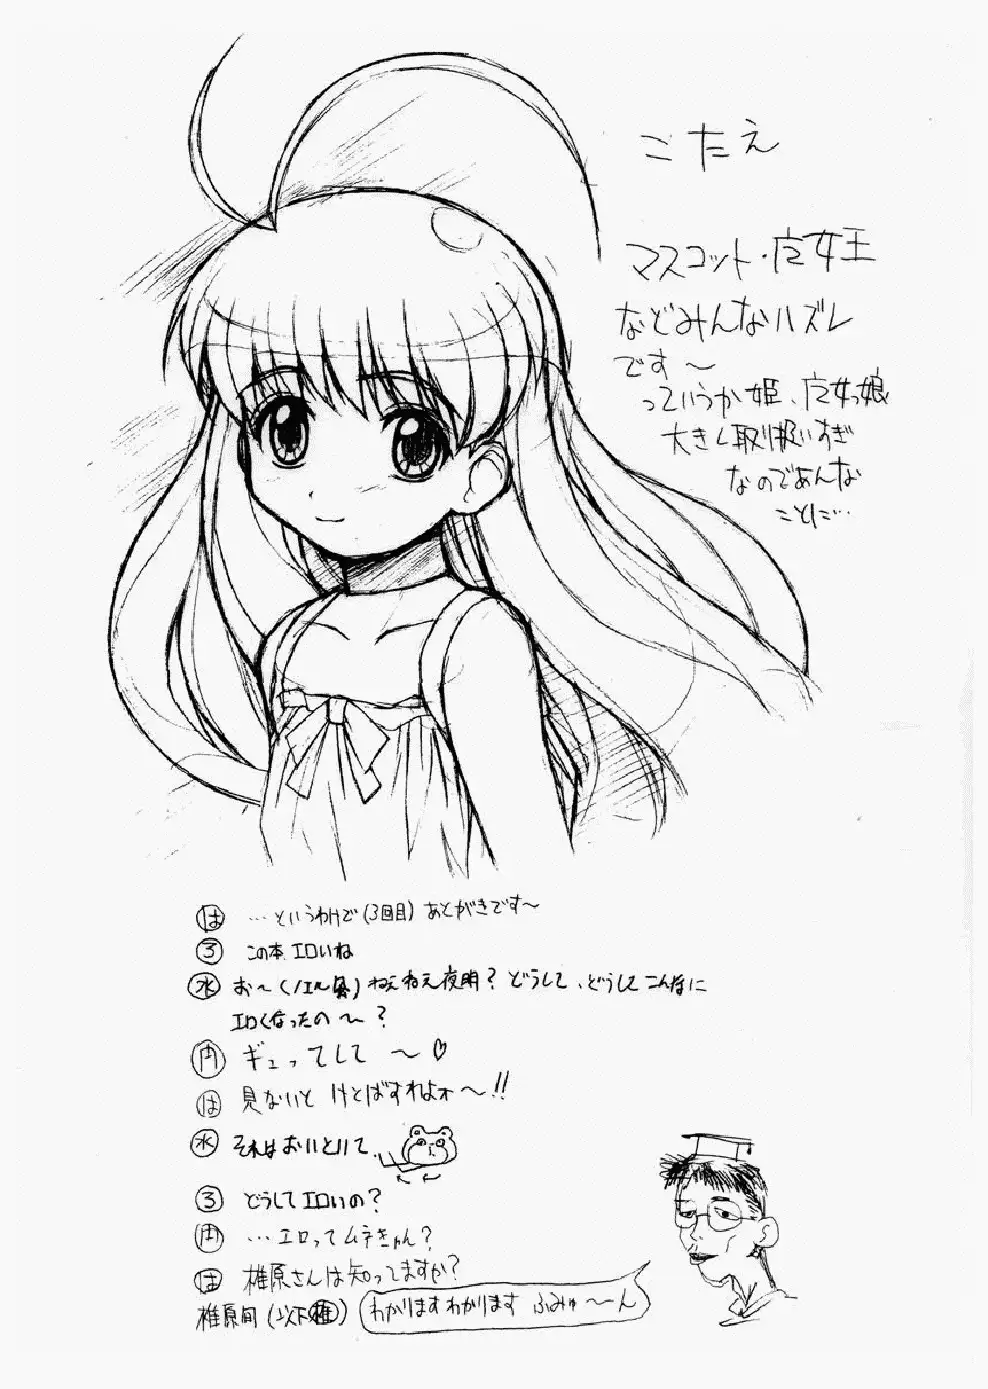 こたえ
マスコット・魔女王
などみんなハズレ
です〜
っていうか姫、魔女っ娘
大きく取り扱いすぎ
なのであんな
ことに…
は …というわけで(3回目) あとがきです〜
ろ この本エロいね
水 お〜(ノエル風) ねえねえ夜明? どうして、どうしてこんなに
エロくなったの〜?
円 ギュってして 〜♡
は 見ないと けとばすわよォ〜!!
水 それはおいといて、
ろ どうしてエロいの?
円 …エロってムネきゅん?
は 椎原さんは知ってますか?
椎原旬(以下椎) わかりますわかります ふみゅ〜〜ん